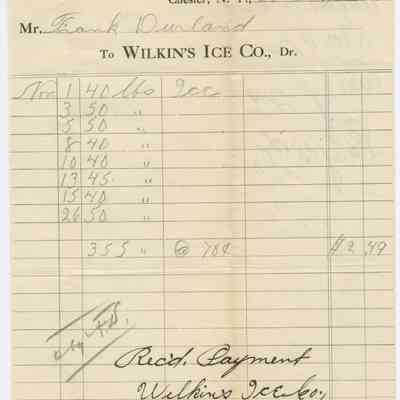 Chester, N. Y.,
Mr. Frank Durland
To WILKIN'S ICE CO., Dr.
Nov 1 40 lbs Ice
3 50 "
5 50 "
8 40 "
10 40 "
13 45 "
15 40 "
26 50 "
355 " @ 70¢ $2.49
Rec'd. Payment
Wilkins Ice Co.